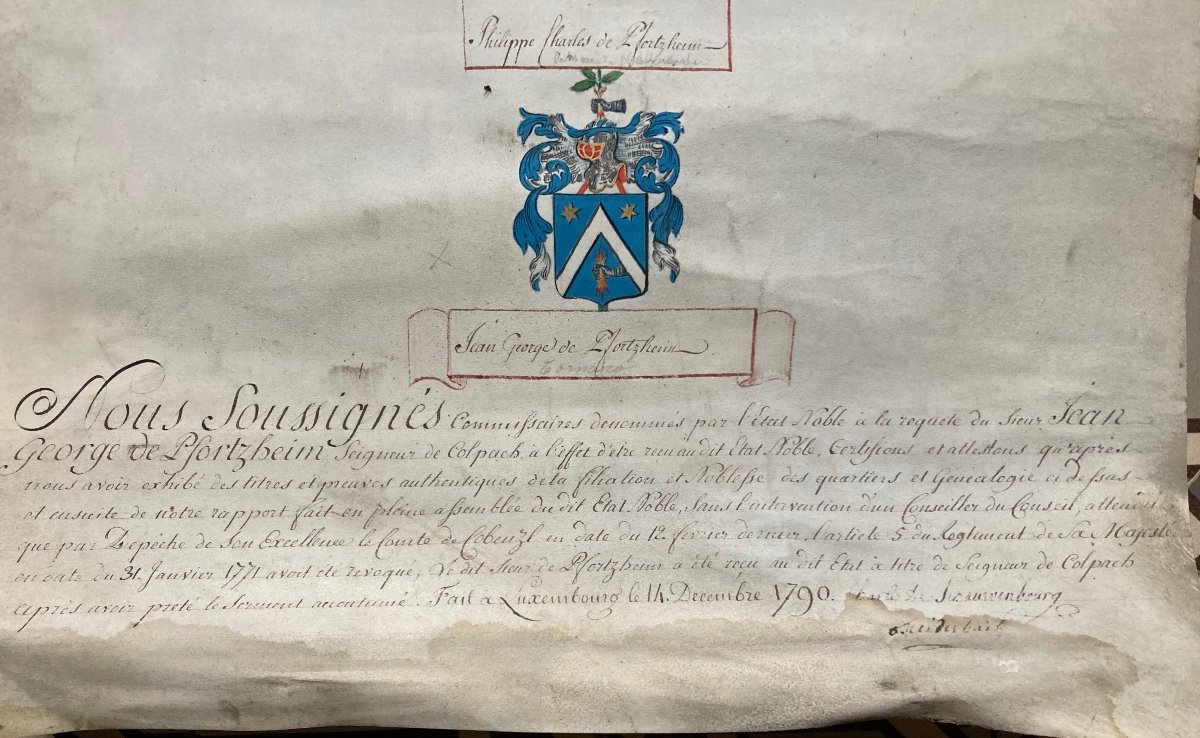 Philippe Charles de Pfortzheim
Jean George de Pfortzheim
Nous Soussignés Commissaires denommés par l'Etat Noble à la requete du Sieur Jean
George de Pfortzheim Seigneur de Colpach, à l'effet d'etre reçu au dit Etat Noble, Certifions et attestons qu'après
nous avoir exhibé des titres et preuves authentiques de la filiation et Noblesse des quartiers et Genealogie ci dessus
et ensuite de notre rapport fait en pleine assemblée du dit Etat Noble, sans l'intervention d'un Conseiller du Conseil, attendu
que par Depéche de Son Excellence le Comte de Cobenzl en date du 12 fevrier dernier l'article 5 du Reglement de Sa Majesté
en date du 31. Janvier 1771 avoit eté revoqué, Le dit Sieur de Pfortzheim a été reçu au dit Etat à titre de Seigneur de Colpach
après avoir preté le serment accoutumé. Fait à Luxembourg le 14. Decembre 1790.